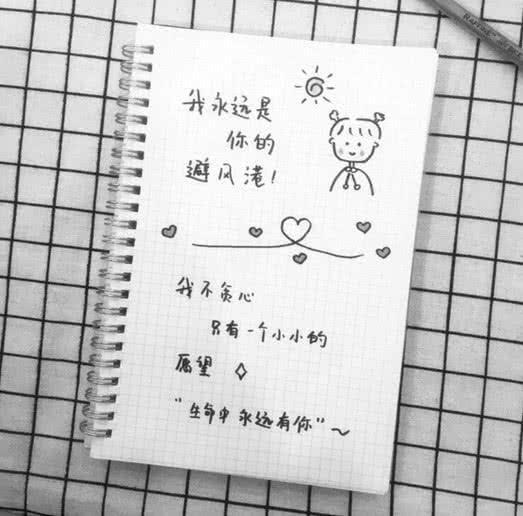 我永远是
你的
避风港!
我不贪心
只有一个小小的
愿望
"生命中永远有你"~